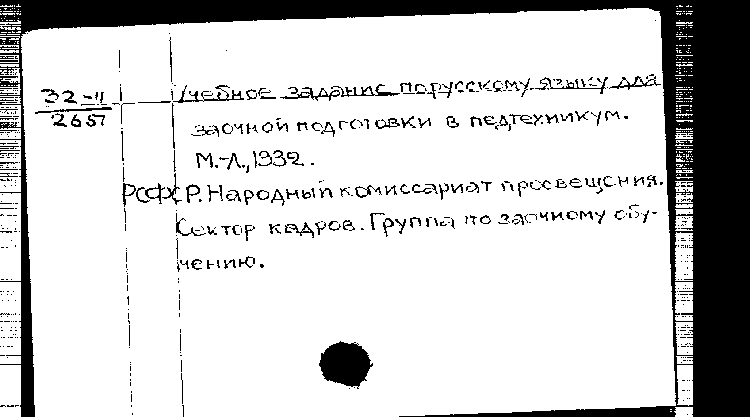 32-11
2657
Учебное задание по русскому языку для
заочной подготовки в педтехникум.
М.-Л., 1932.
РСФСР. Народный комиссариат просвещения.
Сектор кадров. Группа по заочному обу-
чению.